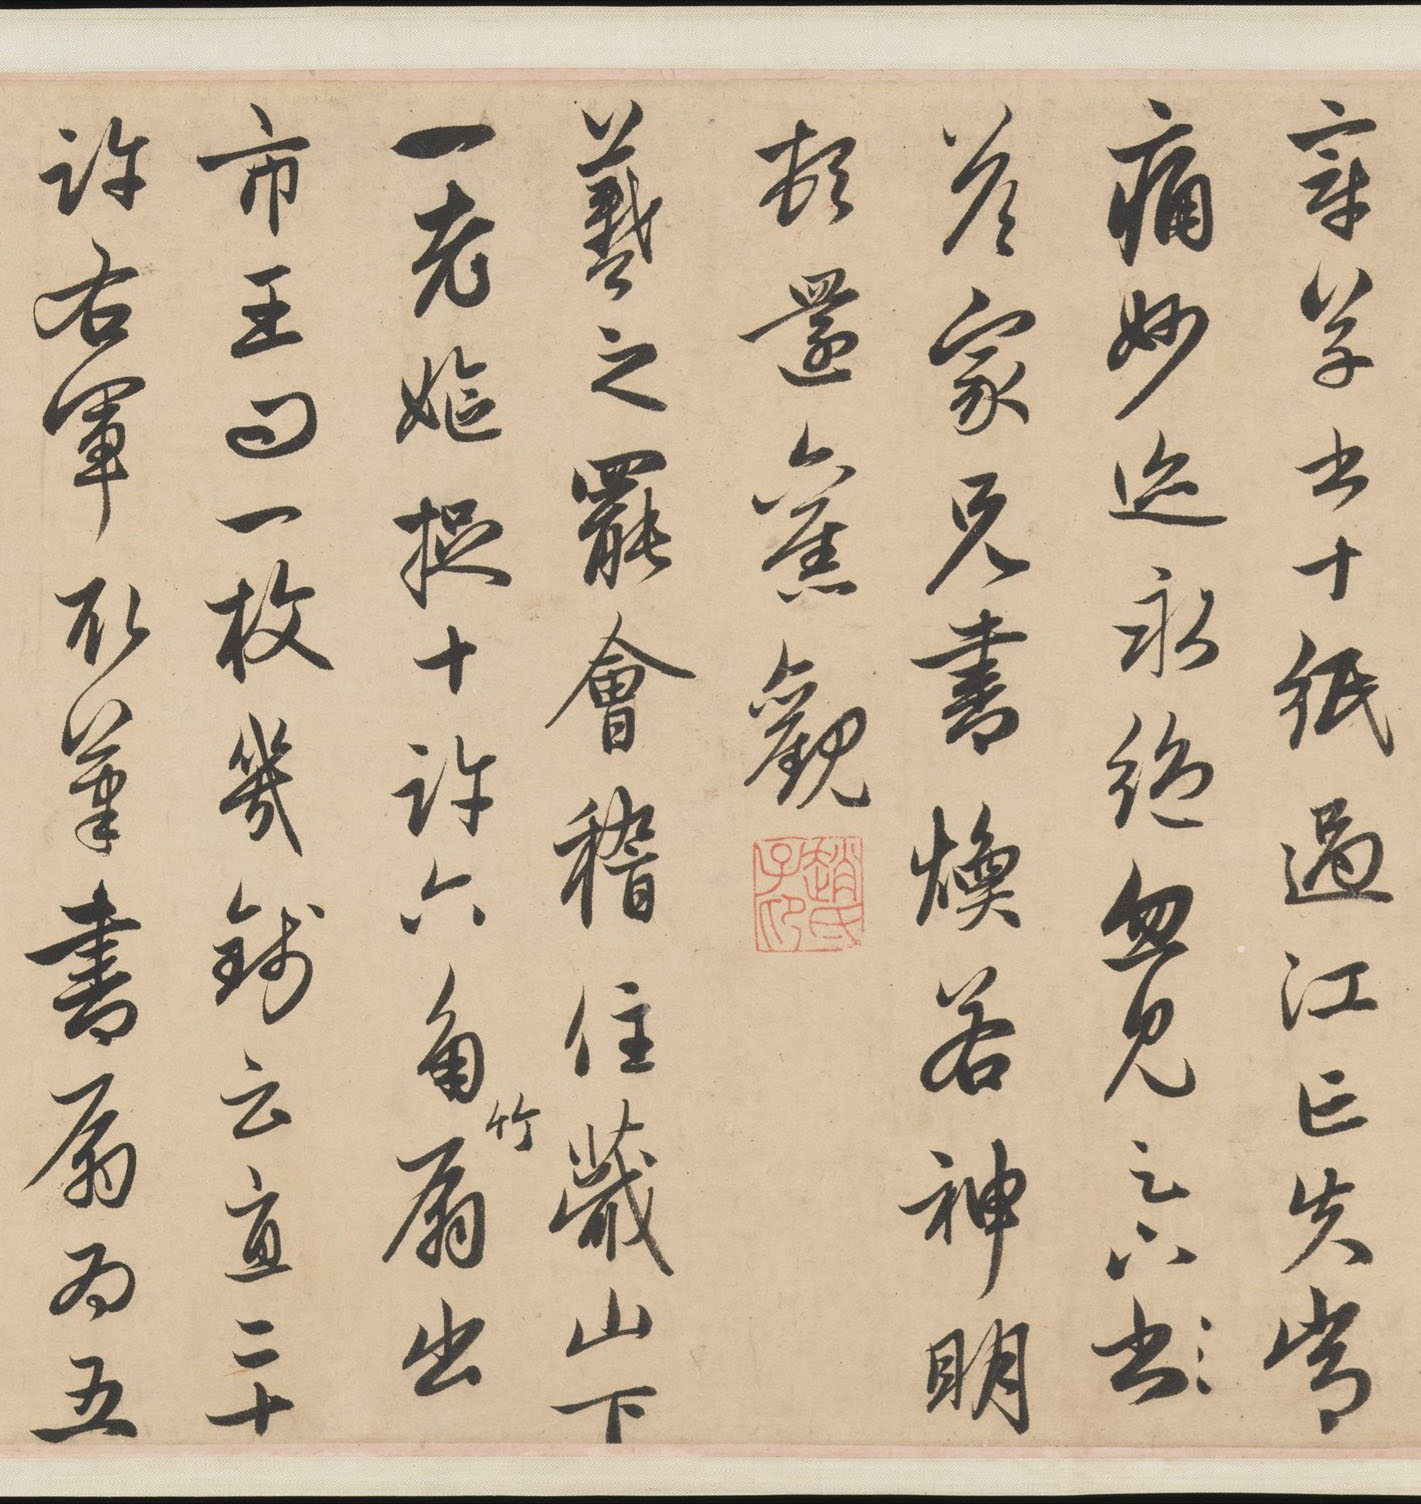 章草書十紙過江亡失常
痛妙迹永絕忽見足下書
答家兄書煥若神明
頓還舊觀
趙氏子昂
羲之罷會稽住蕺山下
一老嫗捉十許六角竹扇出
市王問一枚幾錢云直二十
許右軍取筆書扇為五